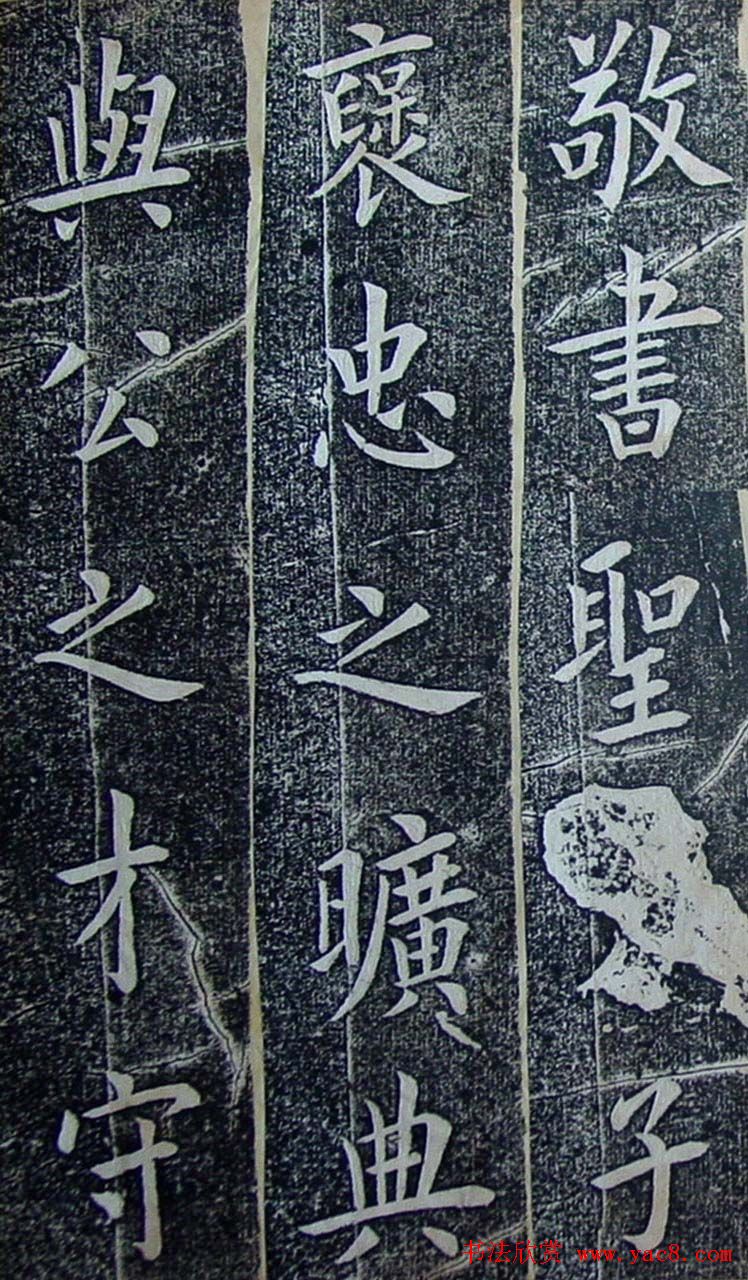 敬書聖子
襃忠之曠典
與公之才守
书法欣赏 www.yac8.com